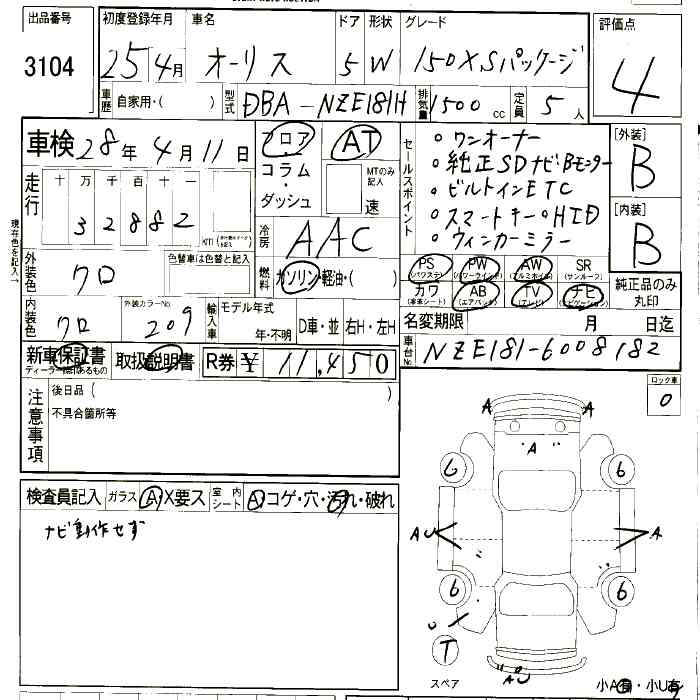 出品番号 初度登録年月 車名 ドア 形状 グレード 評価点
3104 25年4月 オーリス 5 W 150X Sパッケージ 4
車歴 自家用・( ) 型式 DBA-NZE181H 排気量 1500 cc 定員 5人
車検 28年4月11日
フロア・コラム・ダッシュ
AT
MTのみ記入
速
セールスポイント
○ワンオーナー
○純正SDナビBモニター
○ビルトインETC
○スマートキー○HID
○ウィンカーミラー
[外装]
B
[内装]
B
走行 十 万 千 百 十
3 2 8 8 2
冷房 AAC
燃料 ガソリン・軽油・( )
現在色を記入→
外装色 クロ
色替車は色替と記入
内装色 クロ
外装カラーNo.
209
輸入車 モデル年式
年・不明
D車・並 右H・左H
PS (パワステ) PW (パワーウインド) AW (アルミホイル) SR (サンルーフ)
カワ (本革シート) AB (エアバッグ) TV (テレビ) ナビ (ナビゲーション)
純正品のみ丸印
名変期限 月 日迄
車台No. NZE181-6008182
新車保証書
取扱説明書
R券 ¥11,450
注意事項
後日品 ( )
不具合箇所等
ロック車
0
検査員記入 ガラス A X要ス 室内シート A コゲ・穴・汚れ・破れ
ナビ動作せず
A A
A
6 6
AU A
6 6
T
スペア
AU
小A有・小U有